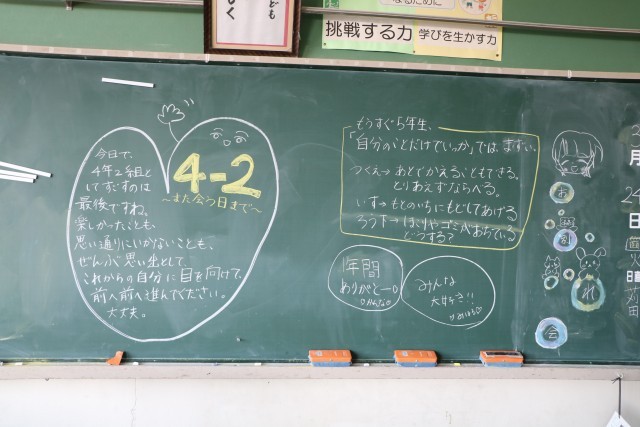 ども
しく
なるために
挑戦する力
学びを生かす力
4-2
～また会う日まで～
今日で、
4年2組と
してすごすのは
最後ですね。
楽しかったことも、
思い通りにいかないことも、
ぜんぶ思い出として、
これからの自分に目を向けて、
前へ前へ進んでください。
大丈夫。
もうすぐ5年生、
「自分のことだけでいっか」では、まずい。
つくえ→あとでかえることもできる。
とりあえずならべる。
いす→もとのいちにもどしてあげる
ろう下→ほこりやゴミがおちている
どうする?
1年間
ありがとー
みんな
大好き!!
お
別
れ
会
24
日